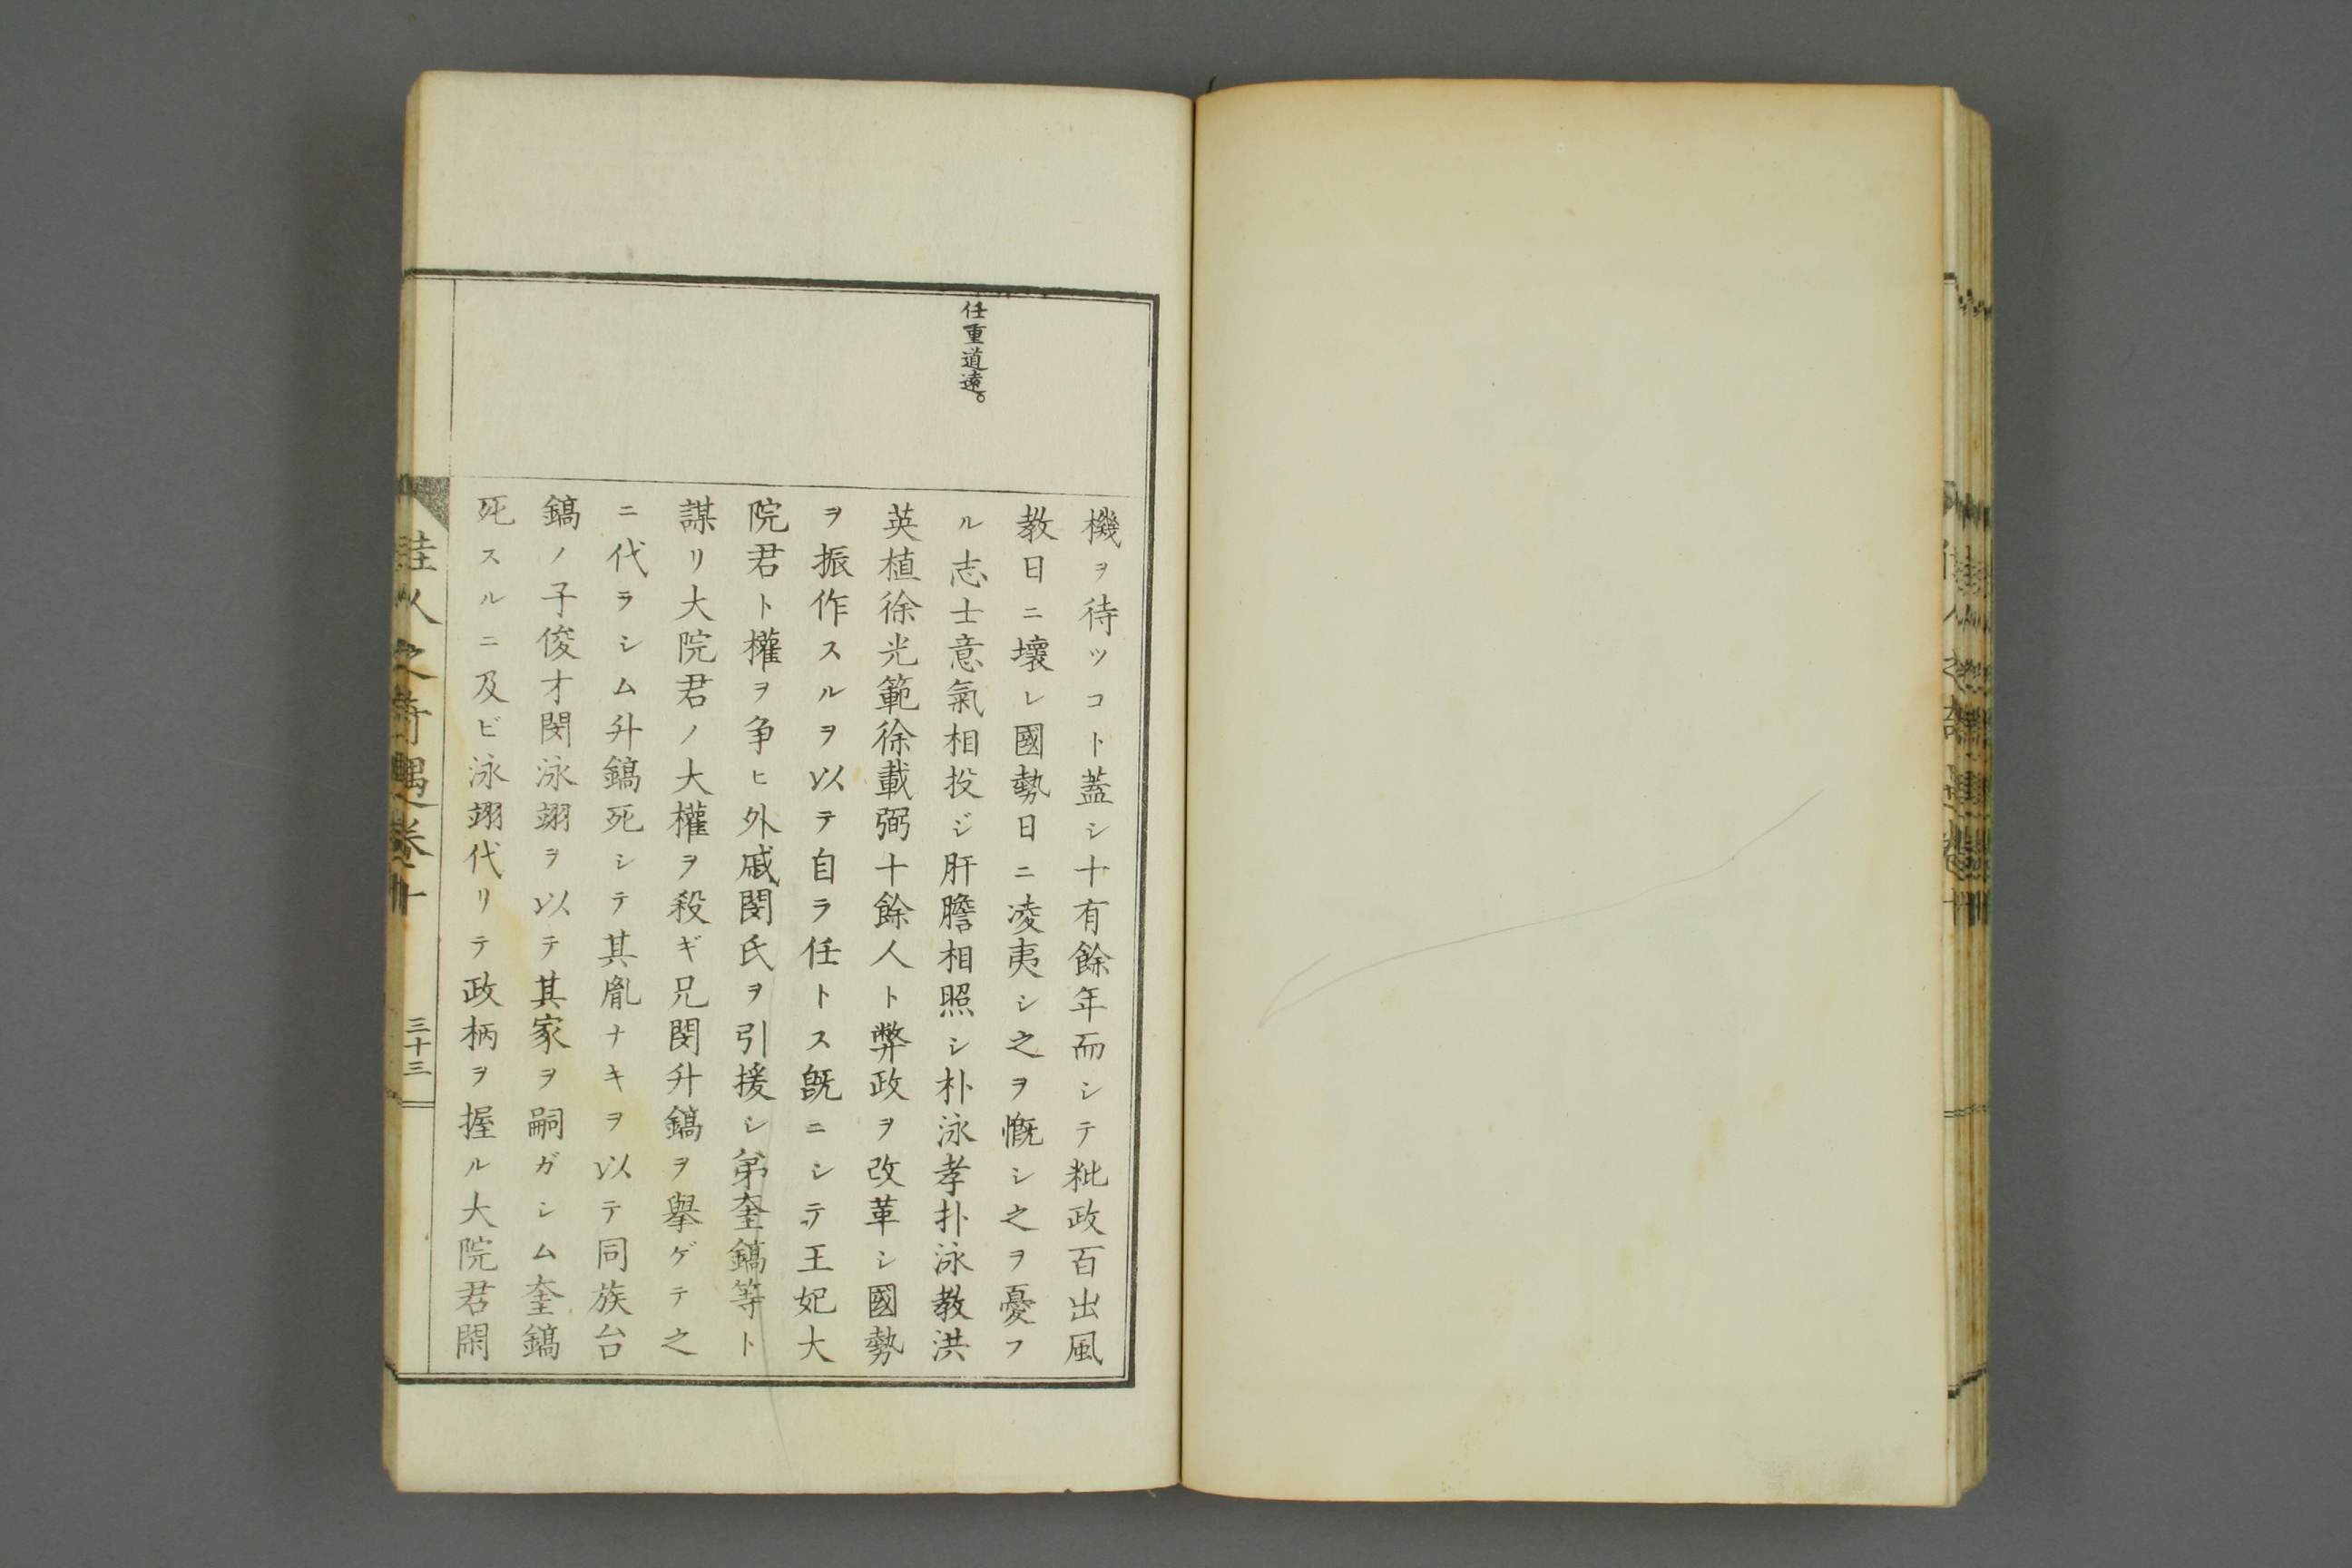 任重道遠。
機ヲ待ツコト蓋シ十有餘年而シテ粃政百出風
教日ニ壞レ國勢日ニ凌夷シ之ヲ慨シ之ヲ憂フ
ル志士意氣相投ジ肝膽相照シ朴泳孝朴泳教洪
英植徐光範徐載弼十餘人ト弊政ヲ改革シ國勢
ヲ振作スルヲ以テ自ラ任トス既ニシテ王妃大
院君ト權ヲ争ヒ外戚閔氏ヲ引援シ弟奎鎬等ト
謀リ大院君ノ大權ヲ殺ギ兄閔升鎬ヲ擧ゲテ之
ニ代ラシム升鎬死シテ其胤ナキヲ以テ同族台
鎬ノ子俊才閔泳翊ヲ以テ其家ヲ嗣ガシム奎鎬
死スルニ及ビ泳翊代リテ政柄ヲ握ル大院君閑
佳人之奇遇卷十
三十三